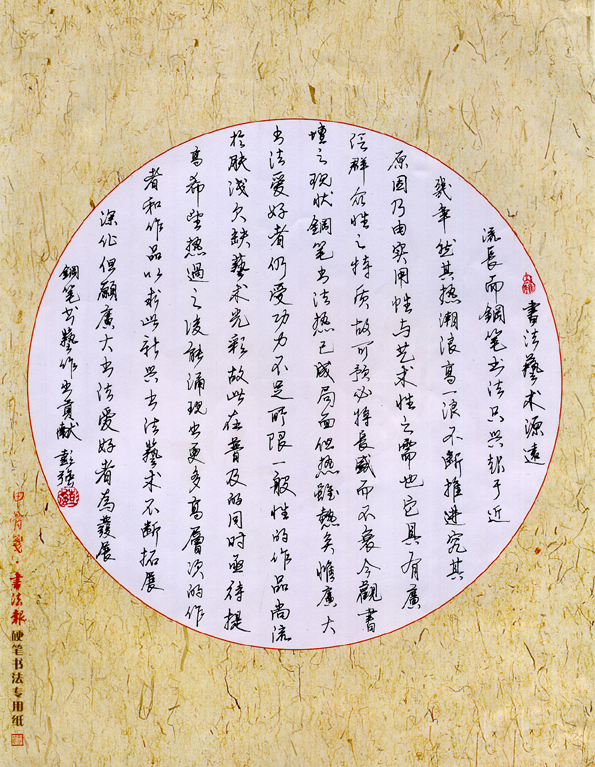 書法藝术源遠
流長而鋼笔书法只兴起于近
幾年然其热潮浪高一浪不断推进究其
原因乃由实用性与艺术性之需也它具有廣
泛群众性之特质故可预必将長盛而不衰今觀書
壇之现状鋼笔书法热已成局面但热雖熱矣惟廣大
书法爱好者仍受功力不足所限一般性的作品尚流
於肤浅欠缺藝术光彩故此在普及的同时亟待提
高希望热過之後能涌现出更多高層次的作
者和作品以求此新兴书法藝术不断拓展
深化但願廣大书法爱好者為發展
鋼笔书藝作出貢献 彭
甲骨笺·書法报硬笔书法专用纸